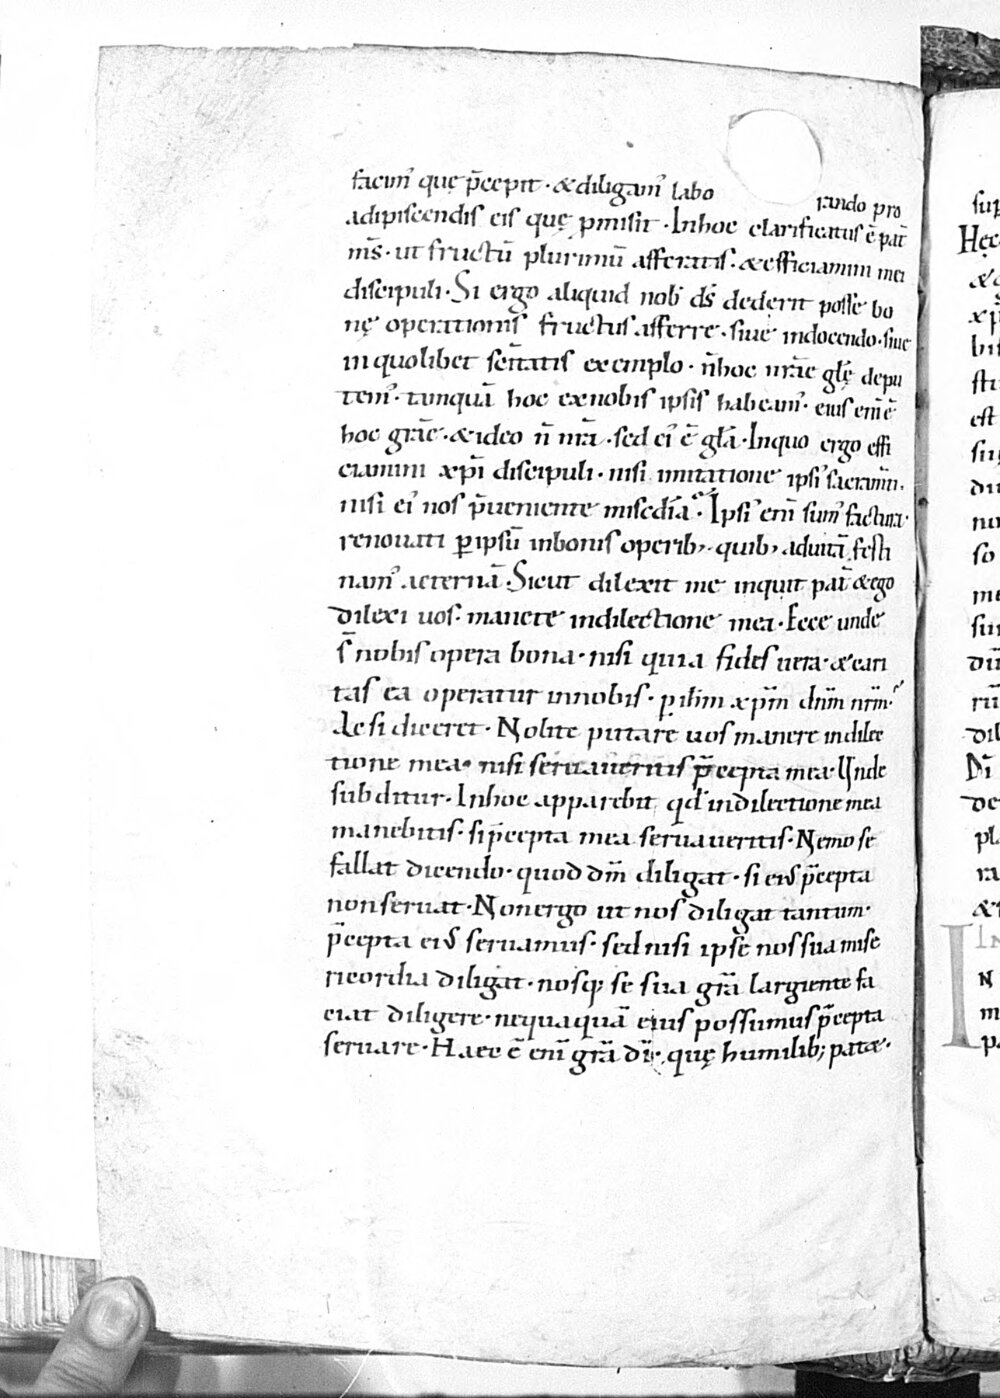 facim᷒ quę p̄cepit · & diligam᷒ labo rando pro
adipiscendis eis quę pmisit · In hoc clarificatus ē pat̄
m̄s · ut fructū plurimū afferatis · & efficiamini mei
discipuli · Si ergo aliquid nob̄ ds̄ dederit posse bo
nę operationis fructus afferre · siue in docendo · siue
in quolibet sc̄itatis exemplo · n̄ hoc nr̄ae glę̄ depu
tem᷒ · tanquā hoc ex nobis ipsis habeam᷒ · eius eni ē
hoc grāe · & ideo n̄ nr̄a · sed ei᷒ ē glā · In quo ergo effi
ciamini xp̄i discipuli · nisi imitatione ipsi᷒ sacram̄ti ·
nisi ei᷒ nos p̄ueniente misc̄dia · Ipsi᷒ eni sum᷒ factura ·
renouati ꝑ ipsū in bonis operib; · quib; ad uitā festi
nam᷒ aeternā · Sicut dilexit me inquit pat̄ & ego
dilexi uos · manete in dilectione mea · Ecce unde
s̄ nobis opera bona · nisi quia fides uera · & cari
tas ea operatur in nobis · p ih̄m xp̄m dn̄m nr̄m ·
Ac si diceret · Nolite putare uos manere in dilec
tione mea · nisi seruaueritis p̄cepta mea · Unde
subditur · In hoc apparebit qđ in dilectione mea
manebitis · si p̄cepta mea seruaueritis · Nemo se
fallat dicendo · quod dm̄ diligat · si ei᷒ p̄cepta
non seruat · Non ergo ut nos diligat tantum ·
p̄cepta ei᷒ seruamus · sed nisi ipse nos sua mise
ricordia diligat · nosq; se sua grā largiente fa
ciat diligere · nequaquā eius possumus p̄cepta
seruare · Haec ē eni grā dī · quę humilib; pat& ·